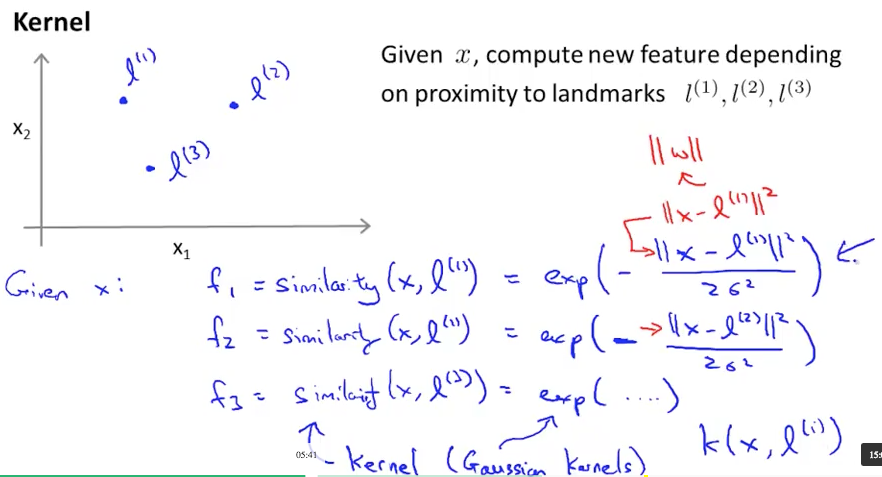 Kernel
l^(1)
l^(2)
x₂
l^(3)
x₁
Given x, compute new feature depending
on proximity to landmarks l^(1), l^(2), l^(3)
||w||
||x - l^(1)||²
Given x: f₁ = similarity (x, l^(1)) = exp(- ||x - l^(1)||² / 2σ²)
f₂ = similarity (x, l^(1)) = exp(- ||x - l^(2)||² / 2σ²)
f₃ = similarity (x, l^(3)) = exp(....)
05:41
- Kernel (Gaussian kernels) k(x, l^(i))